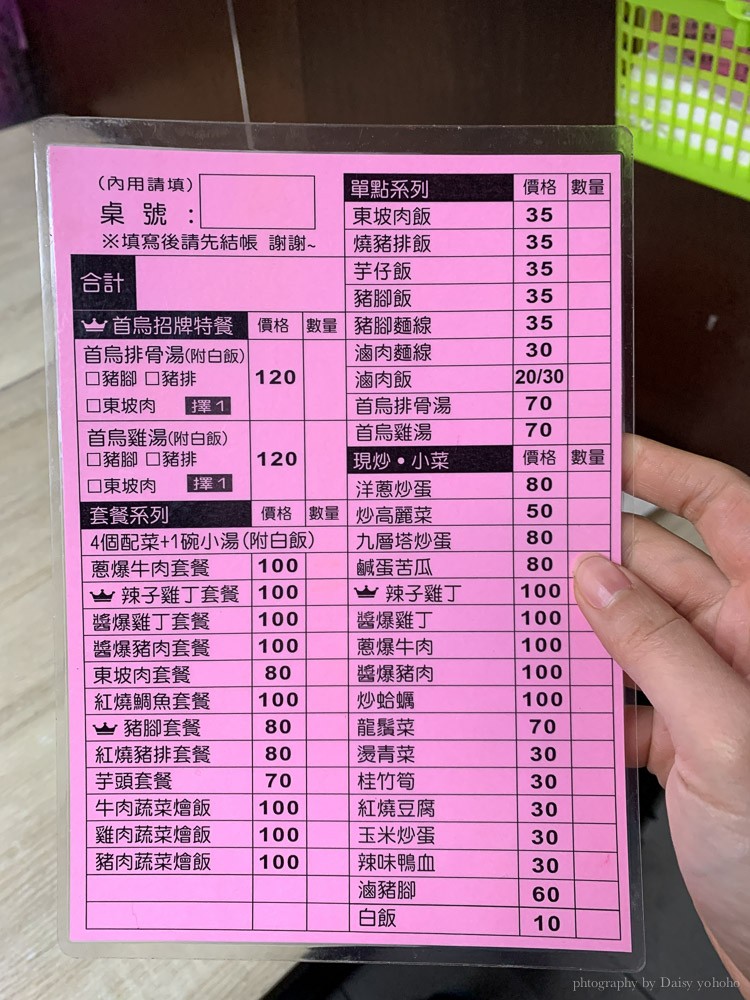 (內用請填)
桌號：
※填寫後請先結帳 謝謝~
合計
首烏招牌特餐 價格 數量
首烏排骨湯(附白飯)
□豬腳 □豬排
□東坡肉 擇1
120
首烏雞湯(附白飯)
□豬腳 □豬排
□東坡肉 擇1
120
套餐系列 價格 數量
4個配菜+1碗小湯(附白飯)
蔥爆牛肉套餐 100
辣子雞丁套餐 100
醬爆雞丁套餐 100
醬爆豬肉套餐 100
東坡肉套餐 80
紅燒鯛魚套餐 100
豬腳套餐 80
紅燒豬排套餐 80
芋頭套餐 70
牛肉蔬菜燴飯 100
雞肉蔬菜燴飯 100
豬肉蔬菜燴飯 100
單點系列 價格 數量
東坡肉飯 35
燒豬排飯 35
芋仔飯 35
豬腳飯 35
豬腳麵線 35
滷肉麵線 30
滷肉飯 20/30
首烏排骨湯 70
首烏雞湯 70
現炒•小菜 價格 數量
洋蔥炒蛋 80
炒高麗菜 50
九層塔炒蛋 80
鹹蛋苦瓜 80
辣子雞丁 100
醬爆雞丁 100
蔥爆牛肉 100
醬爆豬肉 100
炒蛤蠣 100
龍鬚菜 70
燙青菜 30
桂竹筍 30
紅燒豆腐 30
玉米炒蛋 30
辣味鴨血 30
滷豬腳 60
白飯 10
phtography by Daisy yohoho